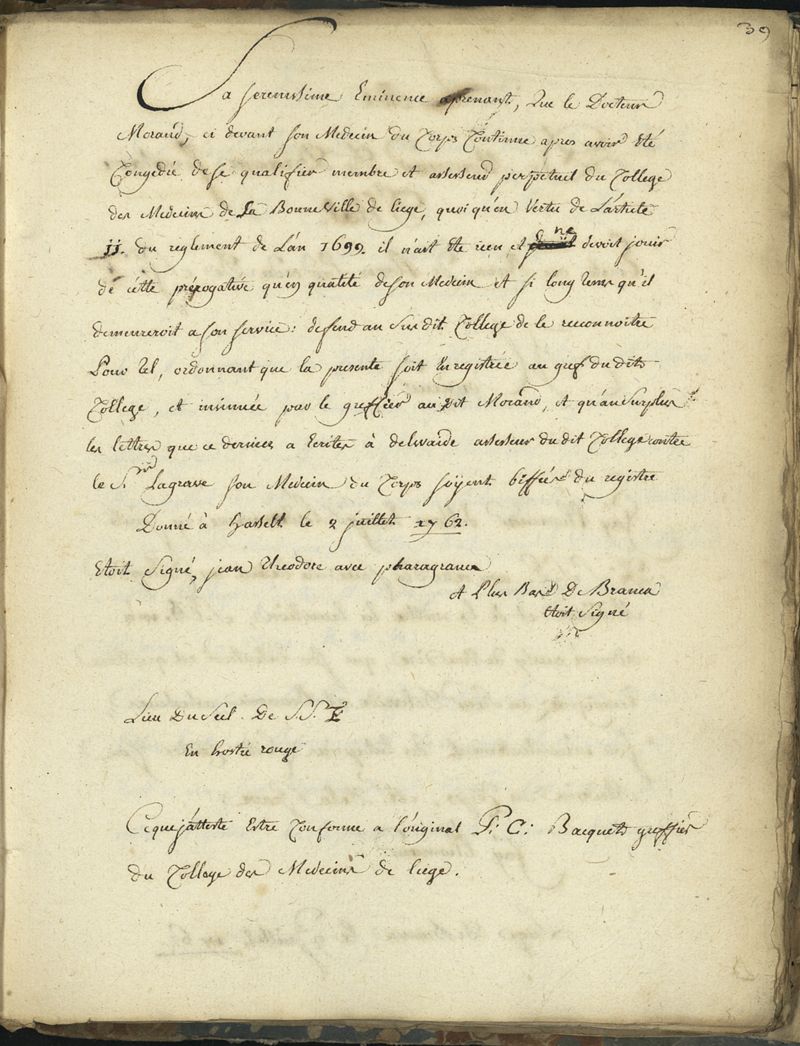 39
Sa serenissime Eminence aprenant, Que le Docteur
Morand, ci devant son Medecin du Corps Continue apres avoir Eté
Congedié de se qualifier membre et assesseur perpetuel du College
des Medecins de La Bonne Ville de liege, quoi qu'en Vertu de L'article
11. du reglement de L'an 1699. il n'ait eté reçu et ne devoit jouir
de cette prérogative qu'en qualité de son Medecin et si long tems qu'il
demeureroit a son service: defend au Sus dit College de le reconnoitre
Pour tel, ordonnant que la presente soit Enregistrée au gref du dit
College, et insinuée par le greffier au dit Morand, et qu'au Surplus
les lettres que ce dernier a Ecrites à delwaide assesseur du dit College contre
le Sr Lagrave son Medecin du Corps soyent biffées du registre
Donné à hasselt le 2 juillet 1762.
Etoit Signé, jean Theodore avec pharagrance
et Plus Bas De Branca
etoit Signé
Lieu Du Séel De S. S. E
En hostie rouge
Ce que j'atteste Estre Conforme a l'original P: C: Bacquet greffier
du College des Medecins de liege.